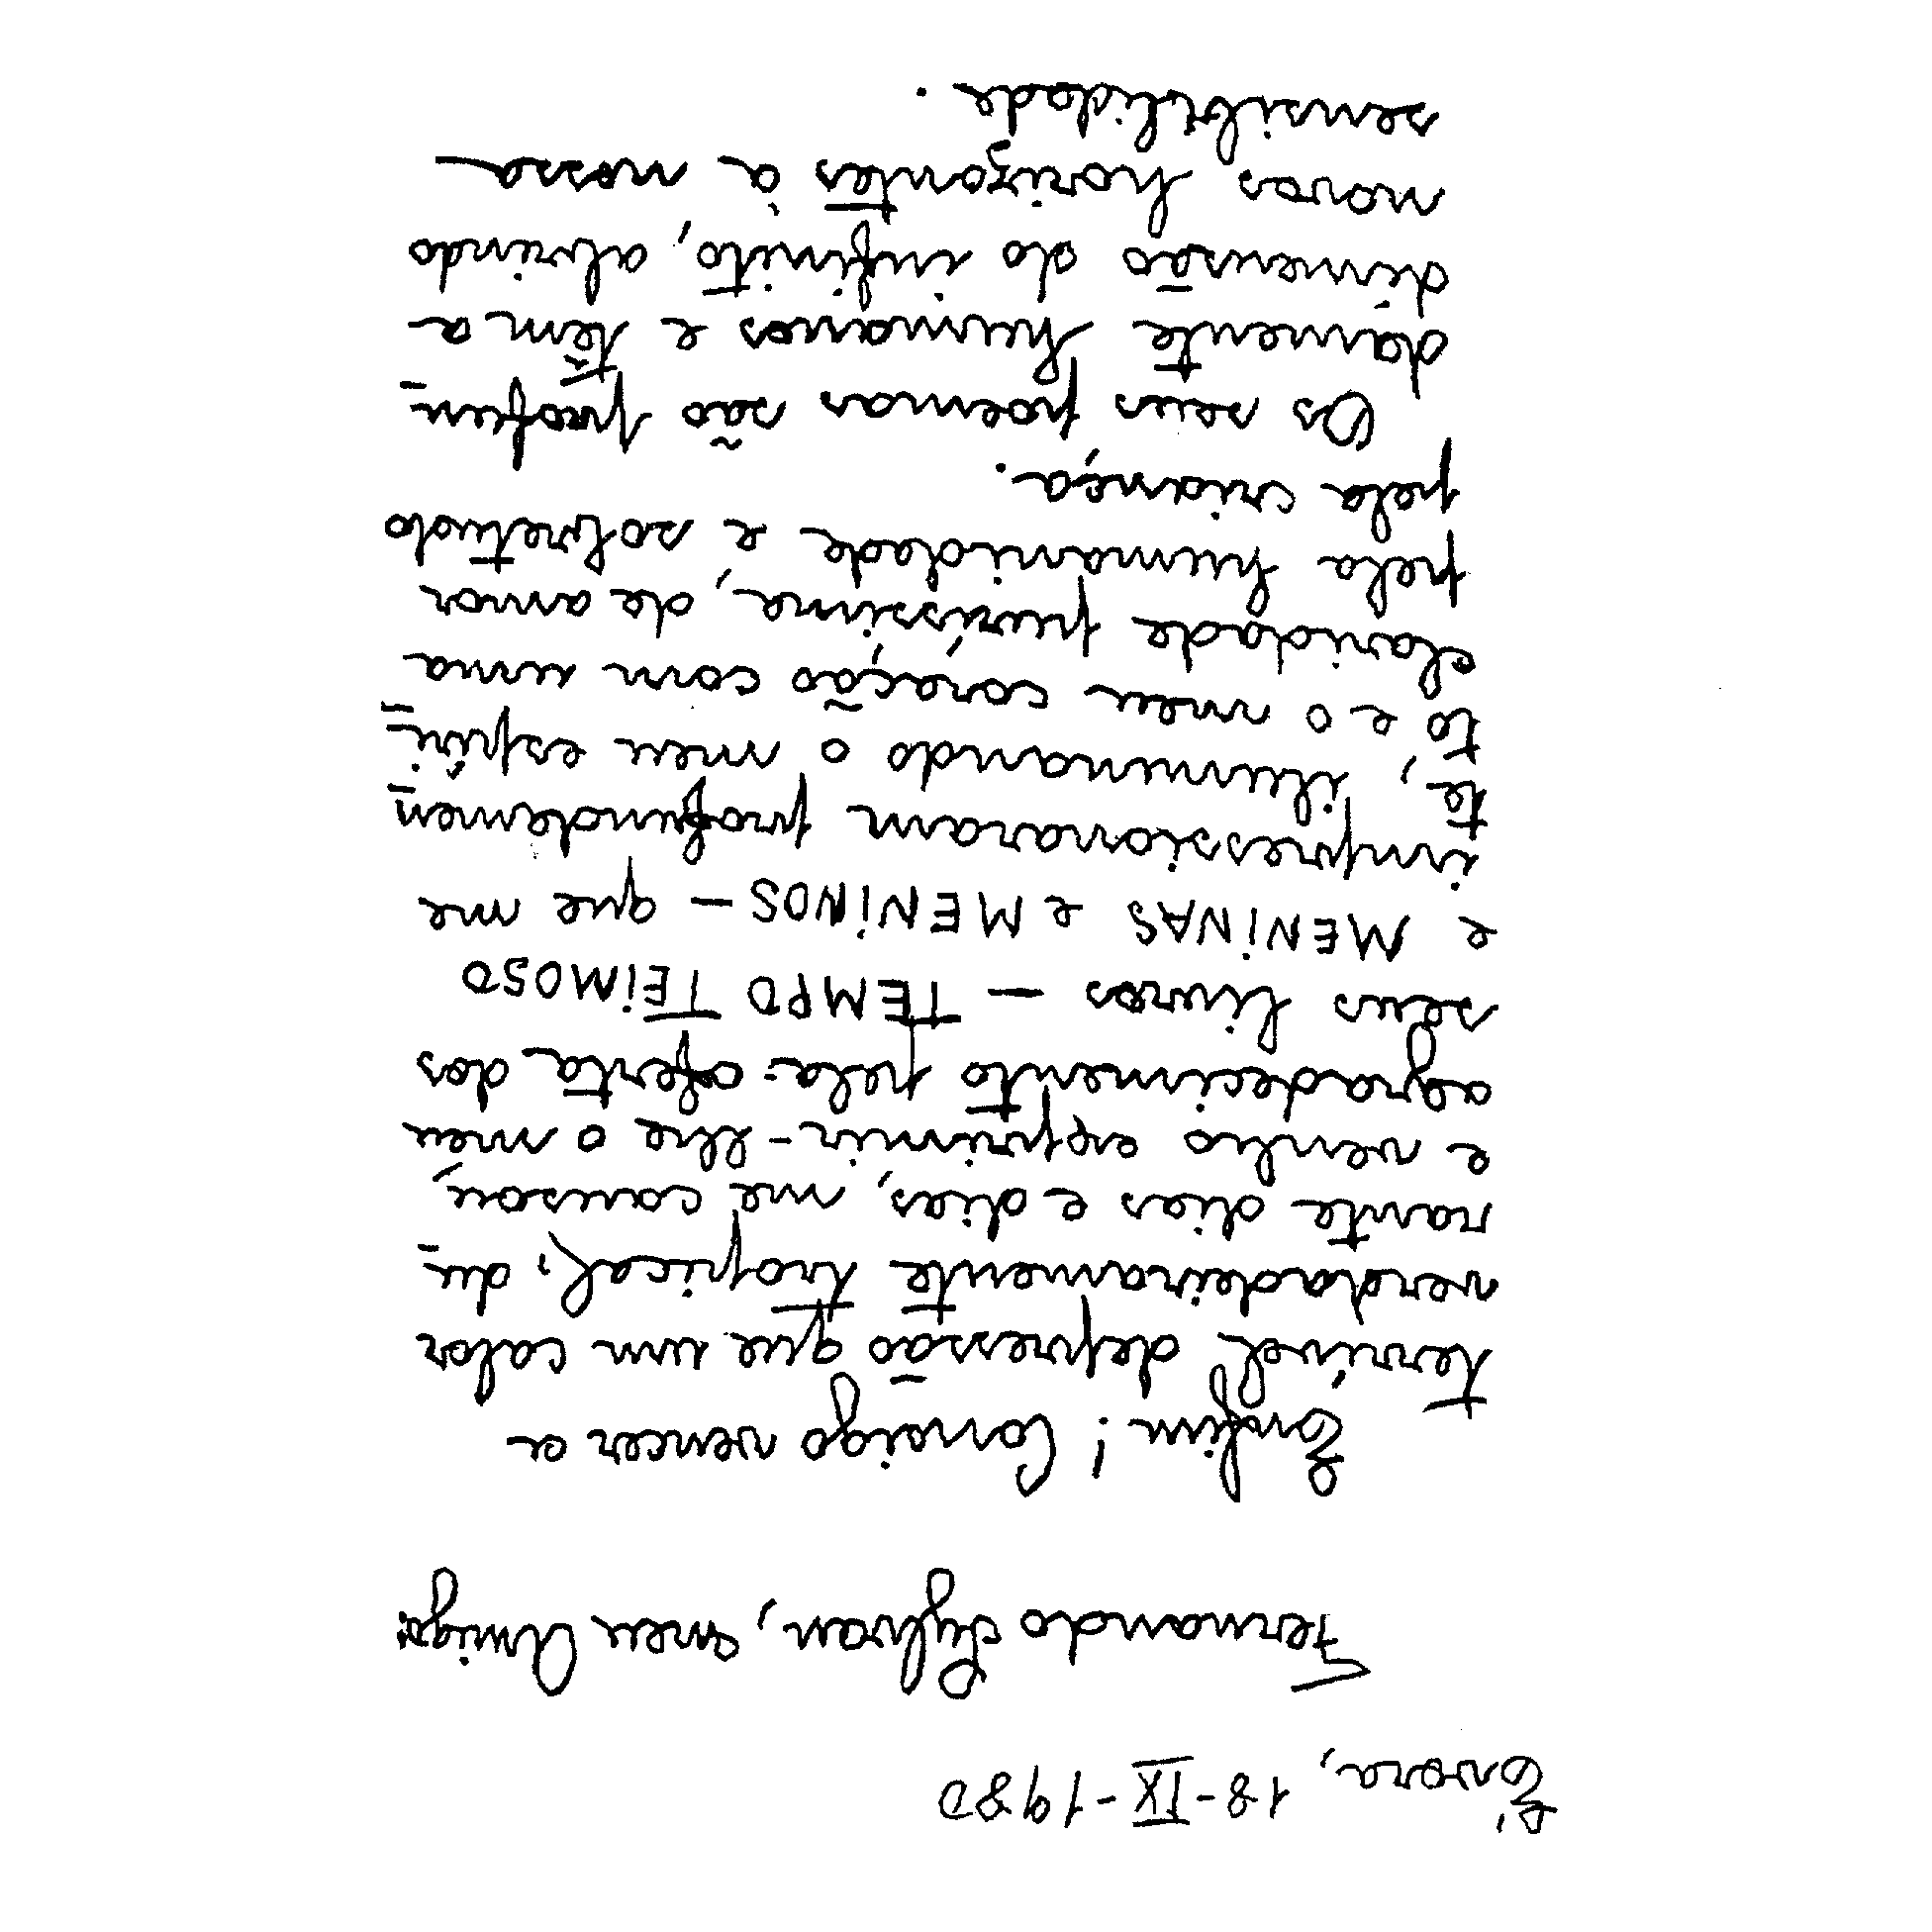 Évora, 18-IX-1980
Fernando Sylvan, meu Amigo:
Enfim! Consigo vencer a
terrível depressão que um calor
verdadeiramente tropical, du-
rante dias e dias, me causou,
e venho exprimir-lhe o meu
agradecimento pela oferta dos
seus livros — TEMPO TEIMOSO
e MENINAS e MENINOS — que me
impressionaram profundamen-
te, iluminando o meu espíri-
to e o meu coração com uma
claridade puríssima, de amor
pela humanidade e sobretudo
pela criança.
Os seus poemas são profun-
damente humanos e têm a
dimensão do infinito, abrindo
novos horizontes à nossa
sensibilidade.